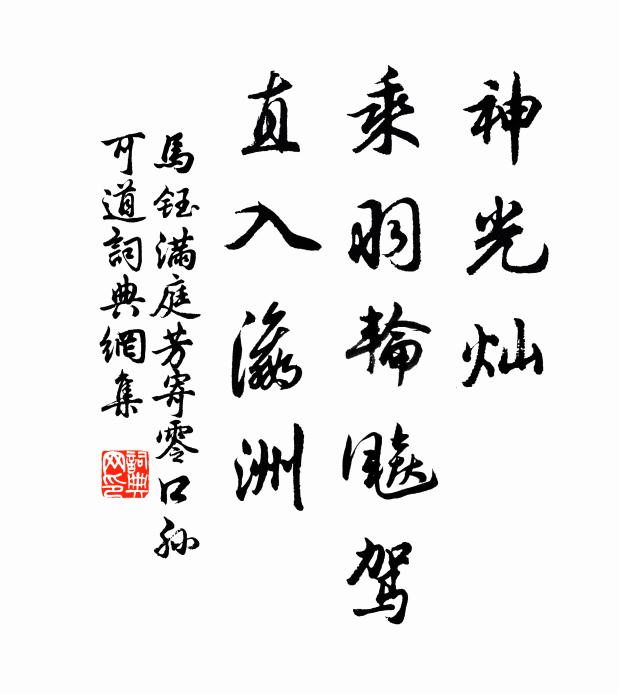 神光灿
乘羽輪飈驾
直入瀛洲
馬鈺满庭芳寄零口孙
可道詞典網集
詞典网印